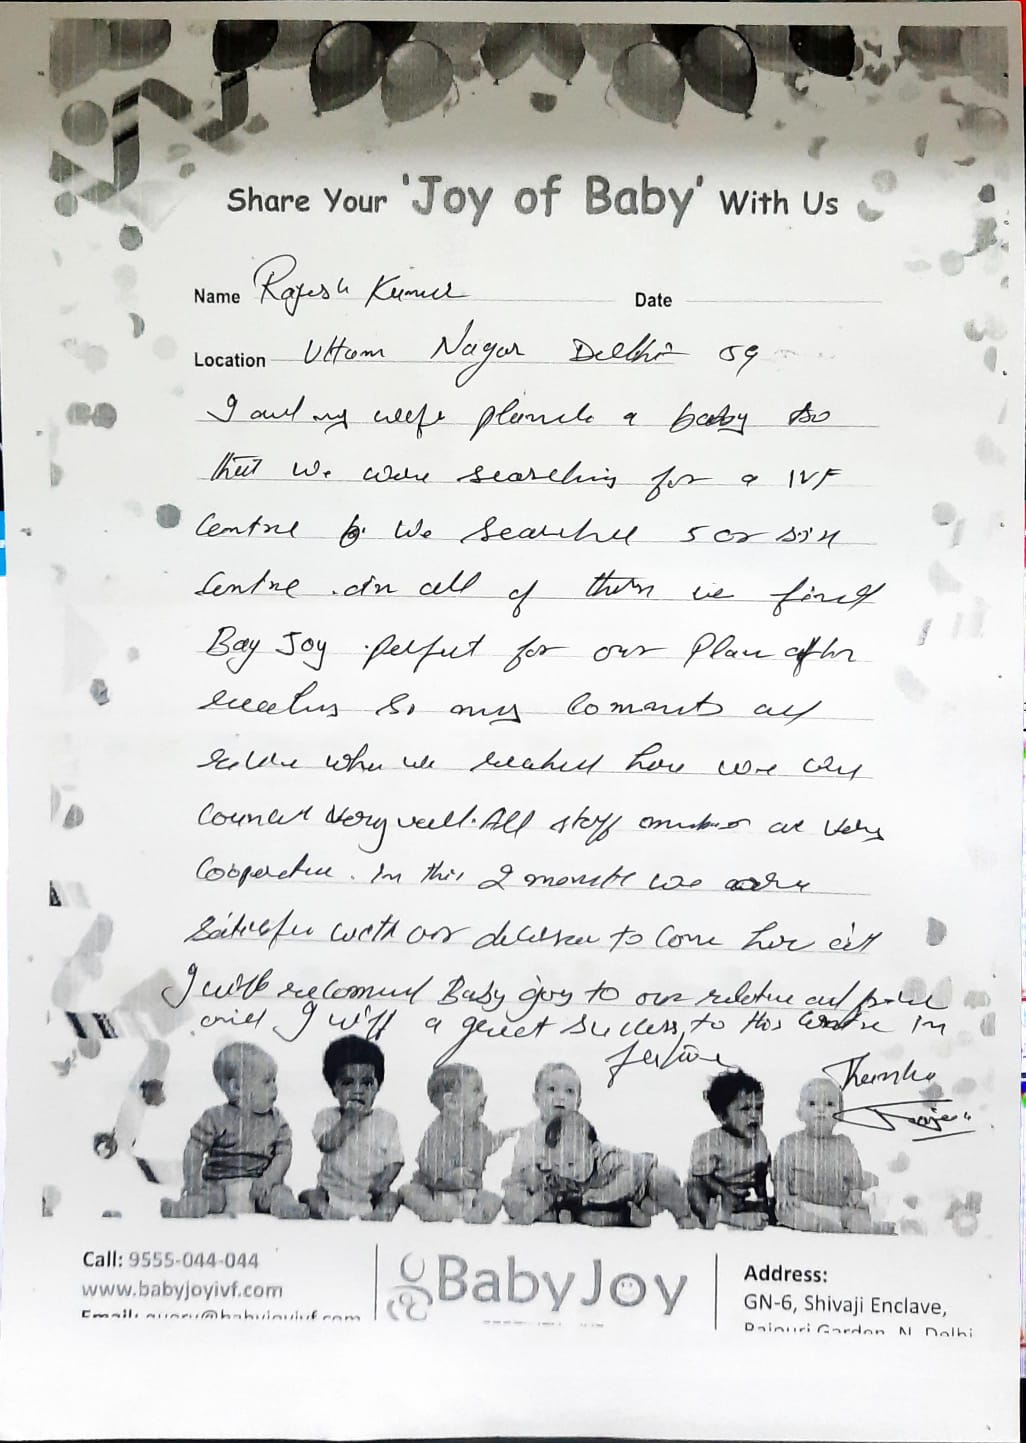 Share Your 'Joy of Baby' With Us
Name Rajesh Kumar Date
Location Uttam Nagar Delhi 59
I and my wife planed a baby so
that we were searching for a IVF
Centre We Searched 5 or six
Centre in all of them we find
Bay Joy perfect for our Plan after
So my Comments
when we reached here we are
very well. All staff members are very
Cooperative. In this 2 months we are
Satisfied with our decision to Come here
I will recomend Baby joy to our relative and
and I wiff a great success, to this Centre in
future
Thanks
Rajesh
Call: 9555-044-044
www.babyjoyivf.com
Email: query@babyjoyivf.com
BabyJoy
Address:
GN-6, Shivaji Enclave,
Rajouri Garden, N. Delhi